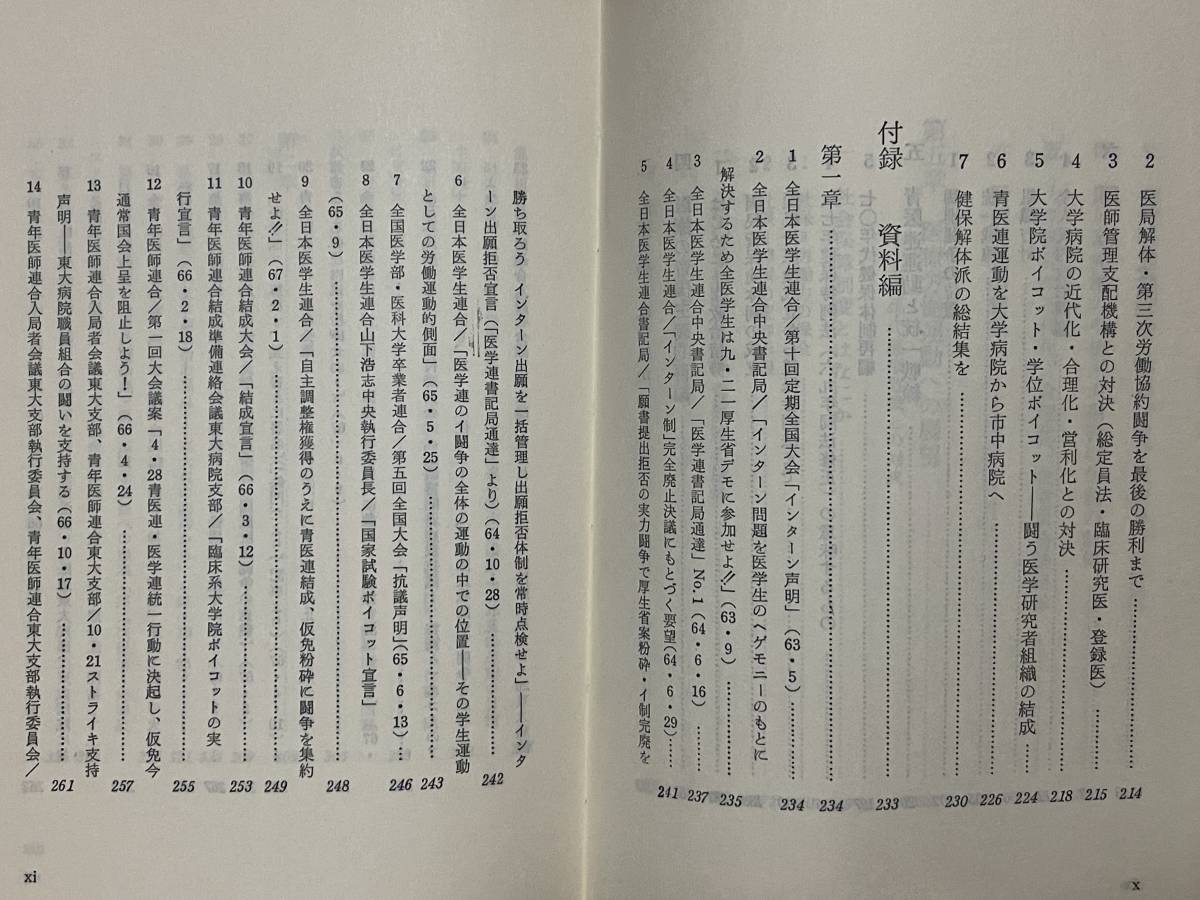 2 医局解体・第三次労働協約闘争を最後の勝利まで……………………214
3 医師管理支配機構との対決（総定員法・臨床研究医・登録医）……215
4 大学病院の近代化・合理化・営利化との対決……………………218
5 大学院ボイコット・学位ボイコット――闘う医学研究者組織の結成……224
6 青医連運動を大学病院から市中病院へ……………………226
7 健保解体派の総結集を……………………230
付録 資料編……………………233
第一章……………………234
1 全日本医学生連合／第十回定期全国大会「インターン声明」（63・5）……………………234
2 全日本医学生連合中央書記局／「インターン問題を医学生のヘゲモニーのもとに
解決するため全医学生は九・二一厚生省デモに参加せよ!!」（63・9）……………………235
3 全日本医学生連合中央書記局／「医学連書記局通達」No.1（64・6・16）……………237
4 全日本医学生連合／「インターン制」完全廃止決議にもとづく要望（64・6・29）……241
5 全日本医学生連合書記局／「願書提出拒否の実力闘争で厚生省案粉砕・イ制完廃を
x
勝ち取ろう インターン出願を一括管理し出願拒否体制を常時点検せよ」――インタ
ーン出願拒否宣言（「医学連書記局通達」より）（64・10・28）……………………242
6 全日本医学生連合／「医学連のイ闘争の全体の運動の中での位置――その学生運動
としての労働運動的側面」（65・5・25）……………………243
7 全国医学部・医科大学卒業者連合／第五回全国大会「抗議声明」（65・6・13）……246
8 全日本医学生連合山下浩志中央執行委員長／「国家試験ボイコット宣言」
（65・9）……………………248
9 全日本医学生連合／「自主調整権獲得のうえに青医連結成、仮免粉砕に闘争を集約
せよ!!」（67・2・1）……………………249
10 青年医師連合結成大会／「結成宣言」（66・3・12）……………………253
11 青年医師連合結成準備連絡会議東大病院支部／「臨床系大学院ボイコットの実
行宣言」（66・2・18）……………………255
12 青年医師連合／第一回大会議案「4・28青医連・医学連統一行動に決起し、仮免今
通常国会上呈を阻止しよう！」（66・4・24）……………………257
13 青年医師連合入局者会議東大支部、青年医師連合東大支部／10・21ストライキ支持
声明――東大病院職員組合の闘いを支持する（66・10・17）……………………261
14 青年医師連合入局者会議東大支部執行委員会、青年医師連合東大支部執行委員会／
xi